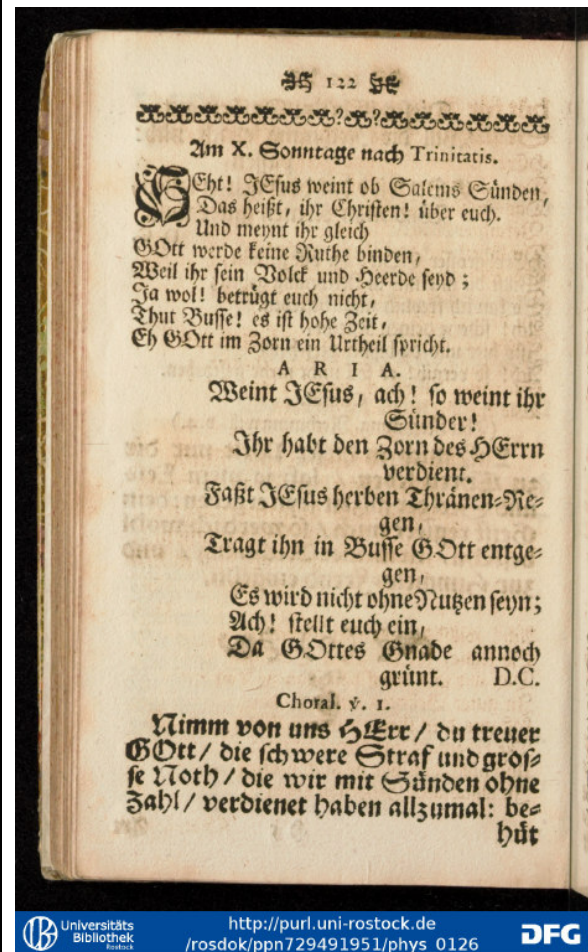 122
Am X. Sonntage nach Trinitatis.
SEht! JEsus weint ob Salems Sünden,
Das heißt, ihr Christen! über euch.
Und meynt ihr gleich
GOtt werde keine Ruthe binden,
Weil ihr sein Volck und Heerde seyd;
Ja wol! betrügt euch nicht,
Thut Busse! es ist hohe Zeit,
Eh GOtt im Zorn ein Urtheil spricht.
ARIA.
Weint JEsus, ach! so weint ihr
Sünder!
Ihr habt den Zorn des HErrn
verdient.
Faßt JEsus herben Thränen-Re-
gen,
Tragt ihn in Busse GOtt entge-
gen,
Es wird nicht ohne Nutzen seyn;
Ach! stellt euch ein,
Da GOttes Gnade annoch
grünt. D.C.
Choral. v. 1.
Nimm von uns HErr / du treuer
GOtt / die schwere Straf und gros-
se Noth / die wir mit Sünden ohne
Zahl / verdienet haben allzumal: be-
hüt
Universitäts
Bibliothek
Rostock
http://purl.uni-rostock.de
/rosdok/ppn729491951/phys_0126
DFG